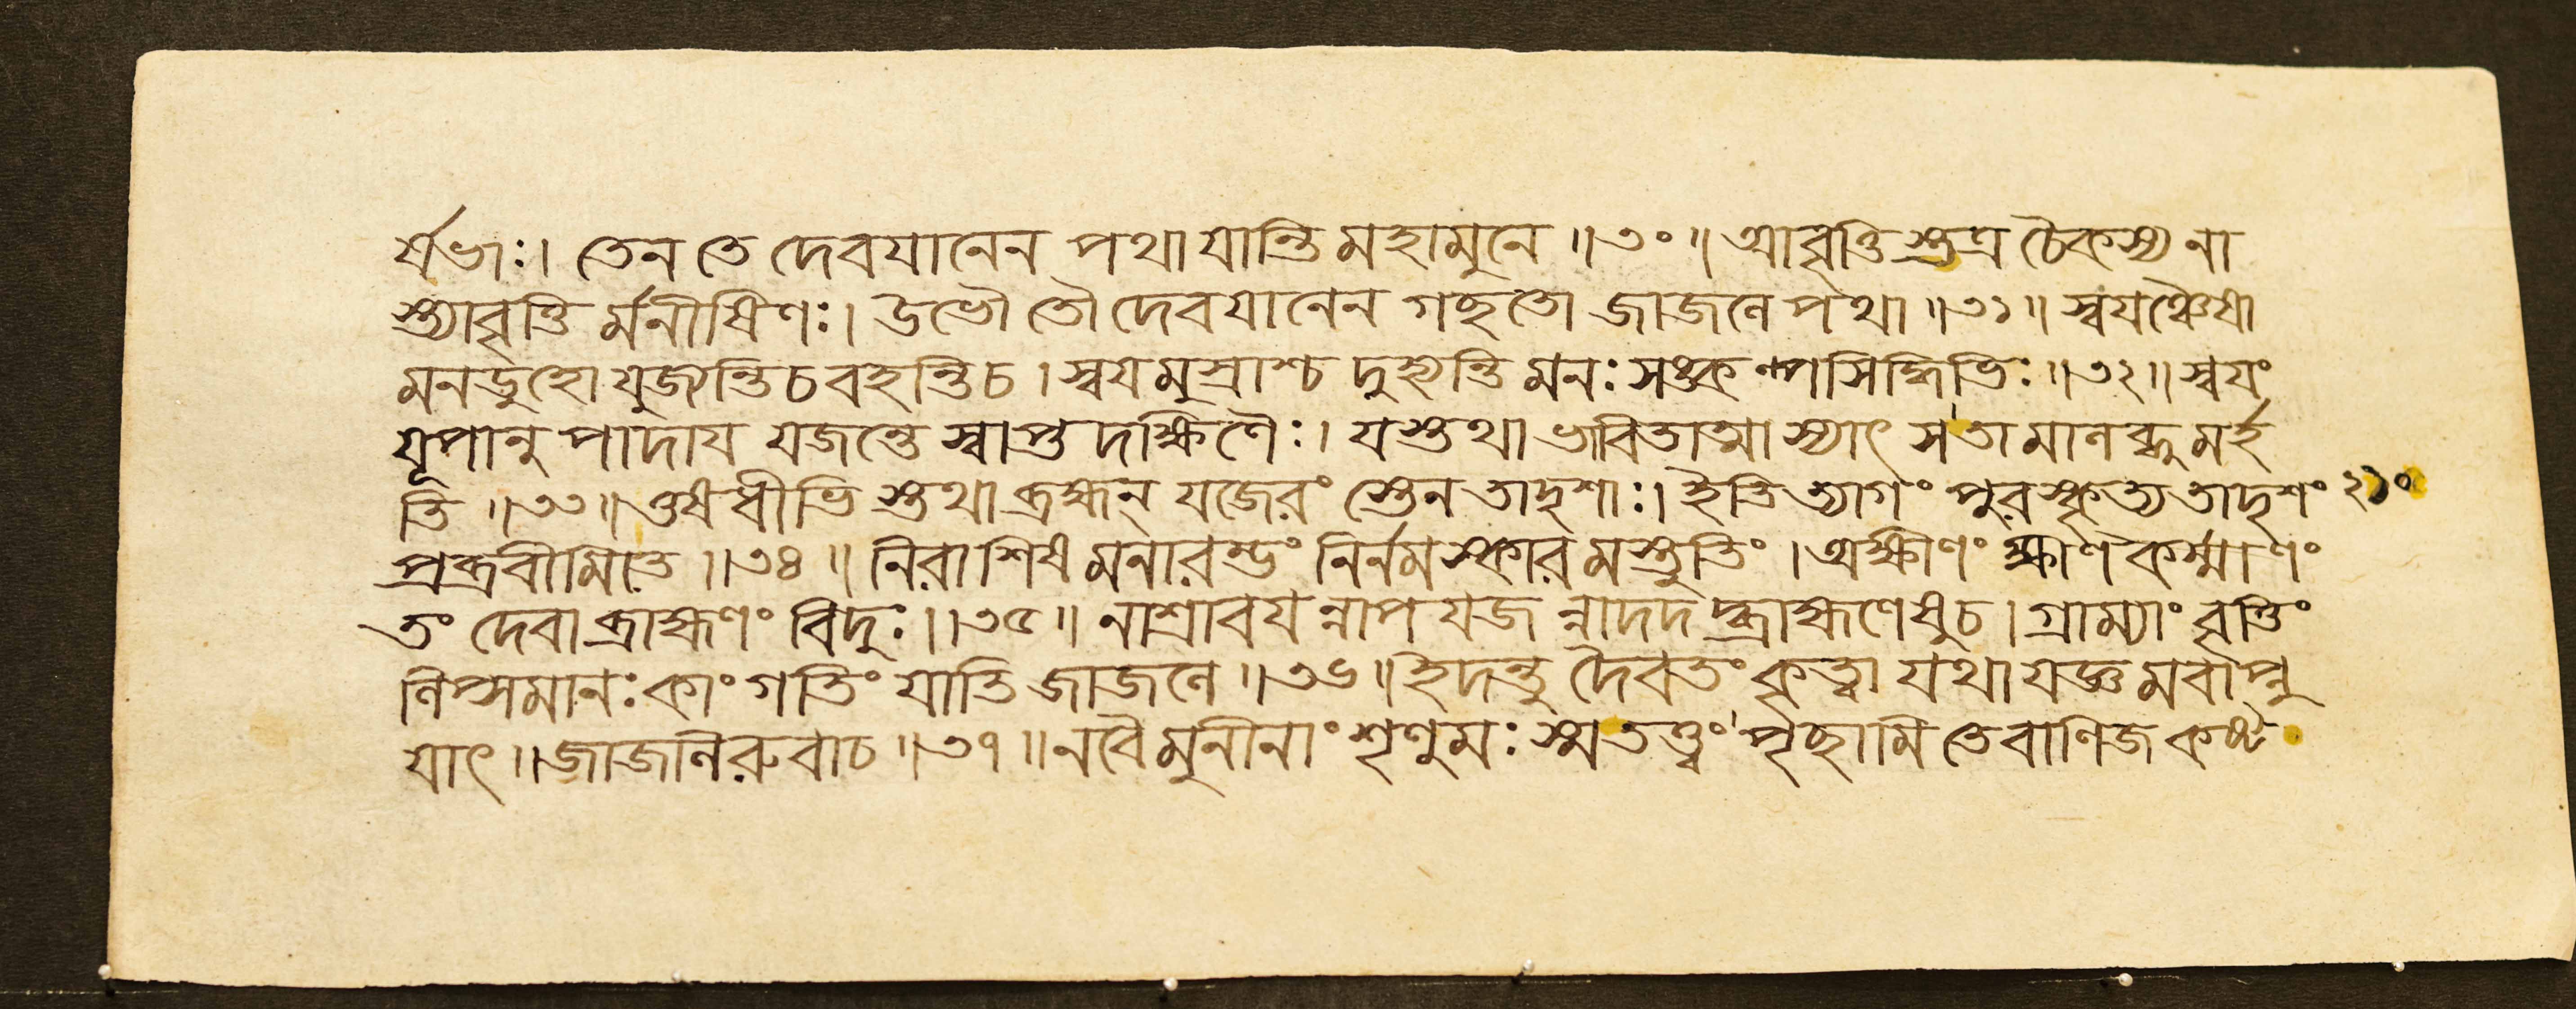 র্ষভাঃ। তেন তে দেবযানেন পথা যান্তি মহামুনে ॥৩০॥ আবৃত্তি স্তত্র চৈকস্য না
স্ত্যাবৃত্তি র্মনীষিণঃ। উভৌ তৌ দেবযানেন গছতো জাজলে পথা ॥৩১॥ স্বযঞ্চৈষা
মনডুহো যুজ্যন্তি চ বহন্তি চ। স্বযমুস্রাশ্চ দুহ্যন্তি মনঃ সঙ্কল্প সিদ্ধিভিঃ ॥৩২॥ স্বযং
যূপানু পাদায যজন্তে স্বাপ্ত দক্ষিণৈঃ। যস্তথা ভাবিতাত্মা স্যাৎ স তা মালব্ধু মর্হ
তি ॥৩৩॥ ওষধীভি স্তথা ব্রহ্মন্ যজেরং স্তেন তাদৃশাঃ। ইতি ত্যাগং পুরস্কৃত্য তাদৃশং ২১০
প্রব্রবীমি তে ॥৩৪॥ নিরাশিষ মনারম্ভং নির্নমস্কার মস্তুতিং। অক্ষীণং ক্ষীণ কর্ম্মাণং
তং দেবা ব্রাহ্মণং বিদুঃ ॥৩৫॥ নাশ্রাবয ন্নাপ যজ ন্নাদদ দ্ব্রাহ্মণেষু চ। গ্রাম্যাং বৃত্তিং
লিপ্সমানঃ কাং গতিং যাতি জাজলে ॥৩৬॥ ইদন্তু দৈবতং কৃত্বা যথা যজ্ঞ মবাপ্নু
যাৎ ॥ জাজলিরুবাচ ॥৩৭॥ ন বৈ মুনীনাং শৃণুমঃ স্ম তত্ত্বং পৃছামি তে বাণিজ কষ্ট